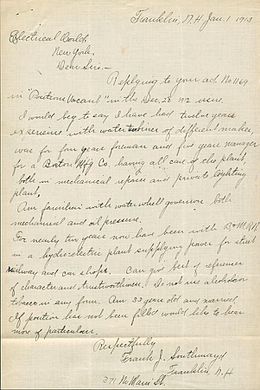 Franklin, N.H. Jan. 1 1913
Electrical World,
New York.
Dear Sirs:-
Replying to your ad. No 1169
in "Positions Vacant" in the Dec. 28 '12 issue.
I would beg to say I have had twelve years
experience with water turbines of different makes,
was for four years foreman and five years manager
for a Boston Mfg Co. having all care of the plant,
both in mechanical repairs and private lighting
plant,
Am familiar with water wheel governors both
mechanical and oil pressure.
For nearly two years now have been with B & M. R.R.
in a hydroelectric plant supplying power for street
railway and car shops. Can give best of references
of character and trustworthiness. Do not use alcohol or
tobacco in any form. Am 33 years old and married.
If position has not been filled would like to hear
more of particulars.
Respectfully
Frank J.
Franklin N.H
271 No Main St.